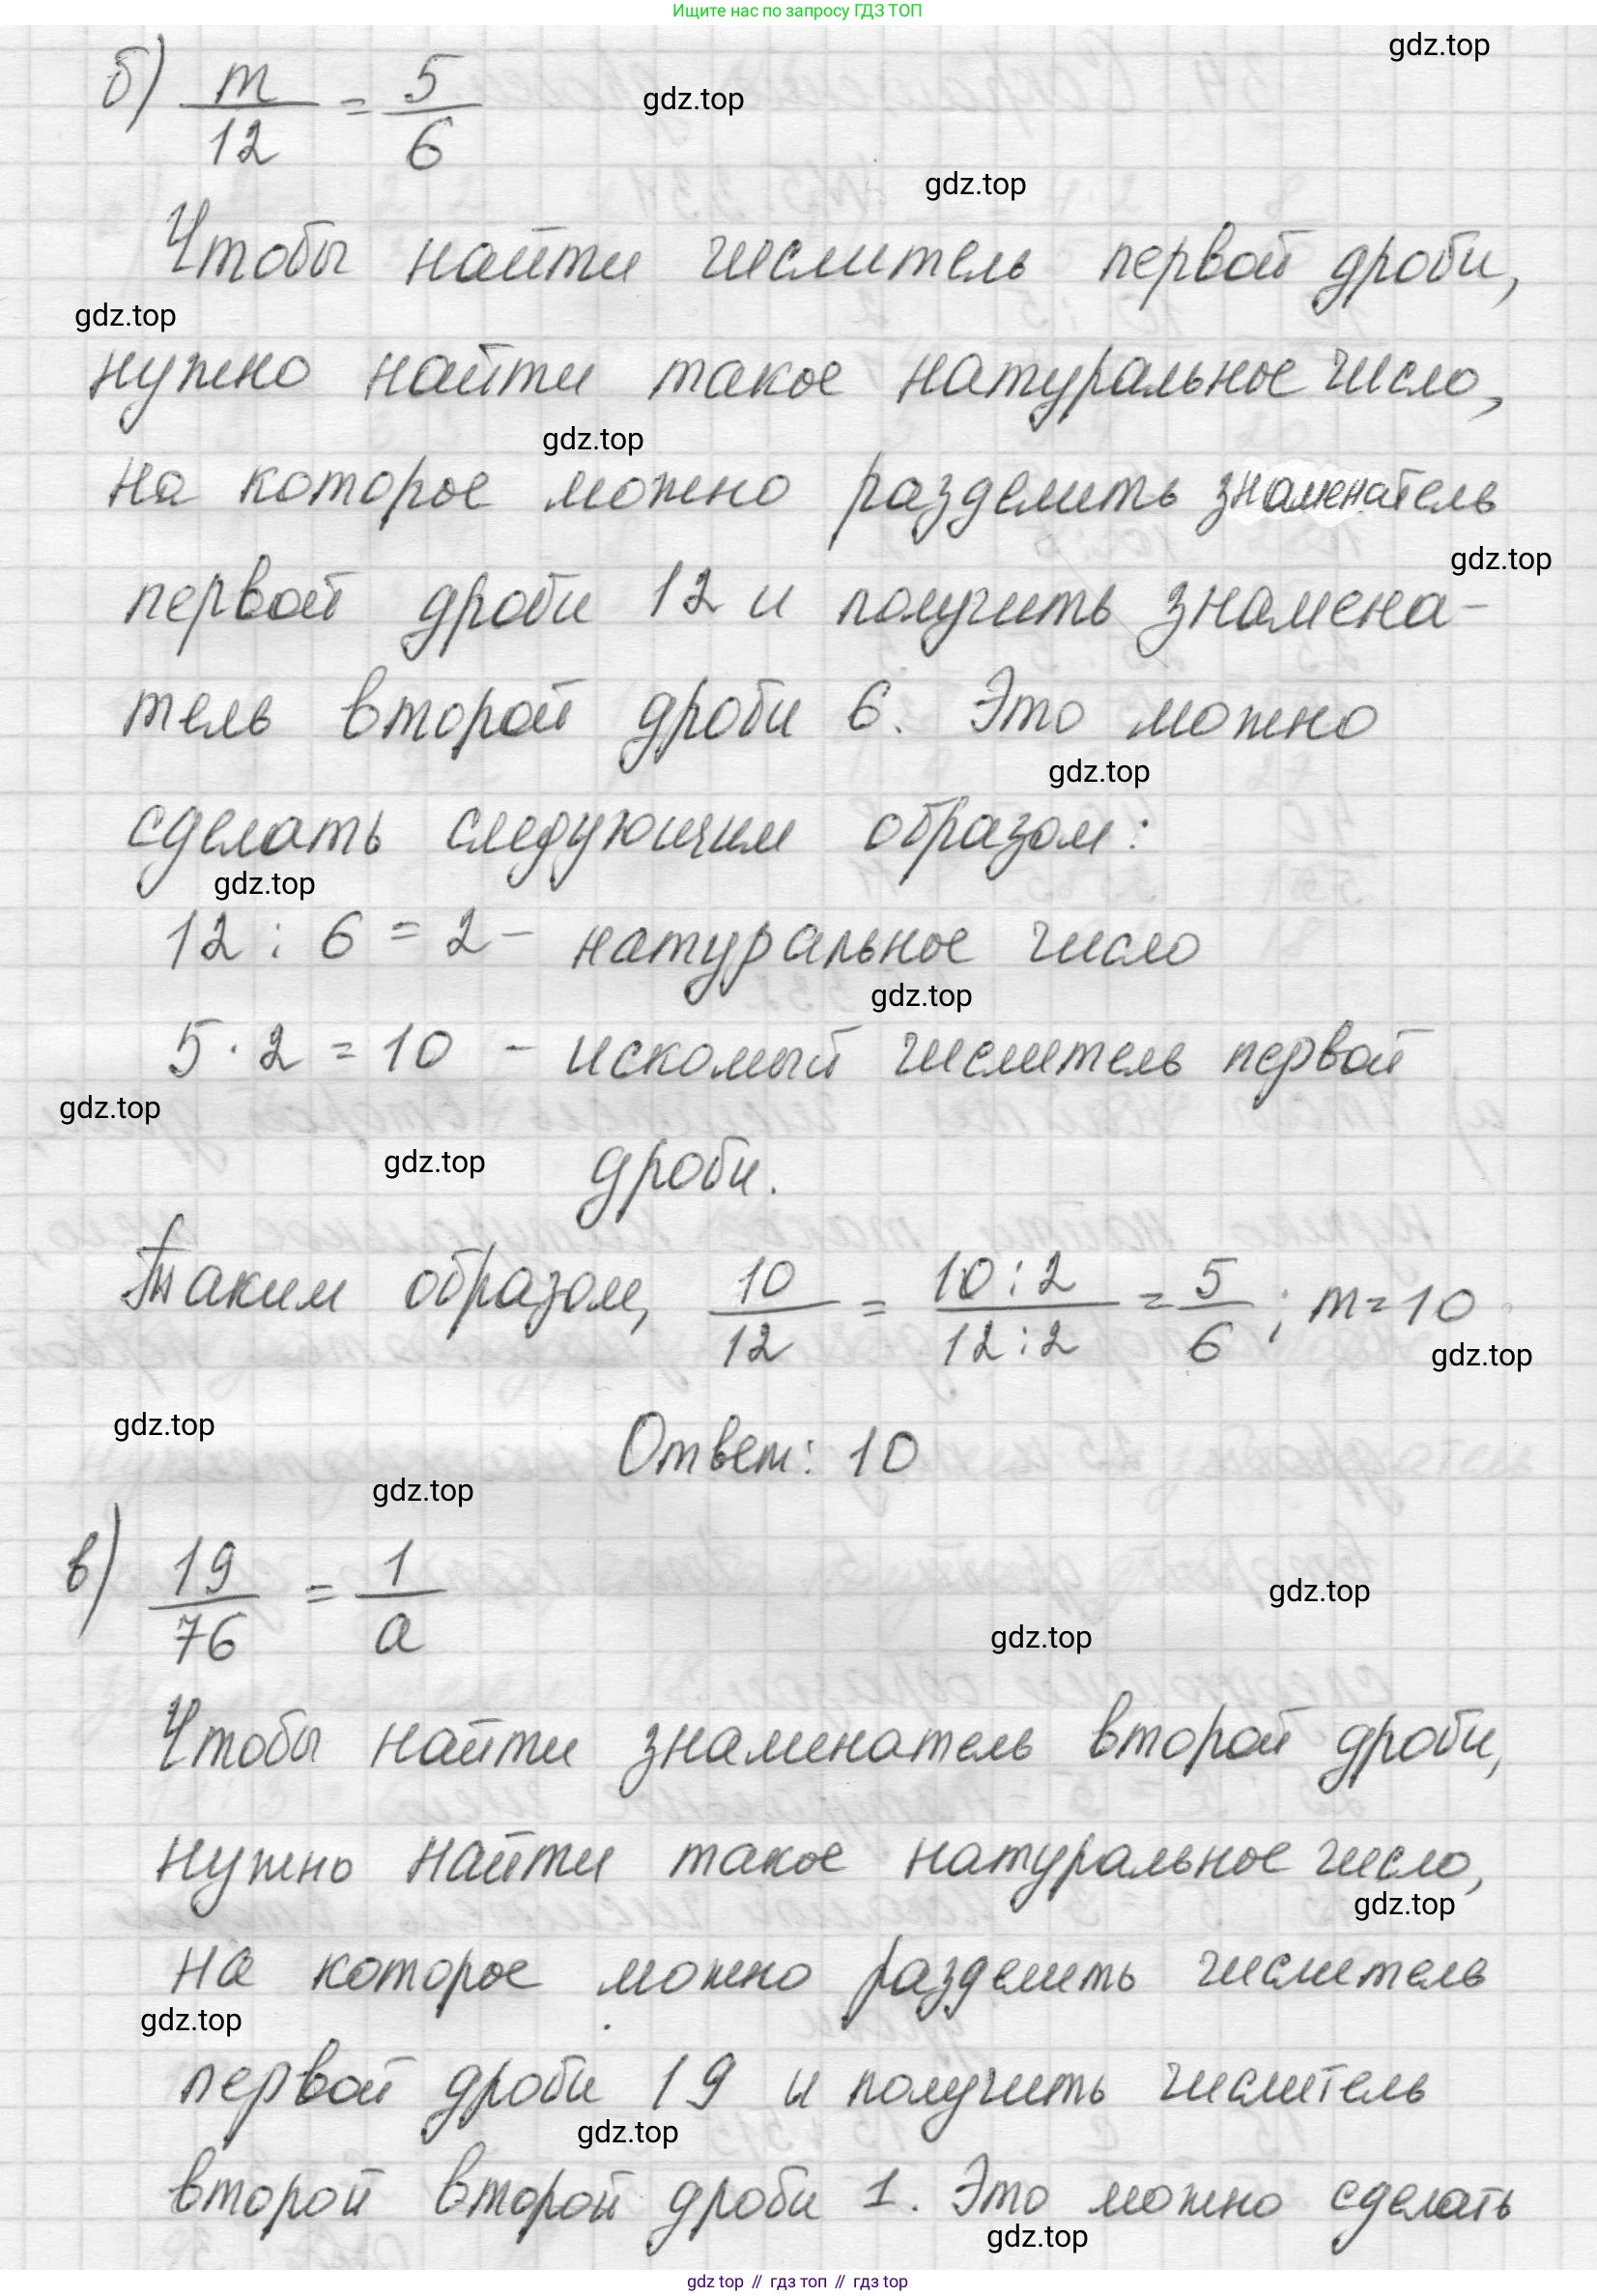 Ищите нас по запросу ГДЗ ТОП
gdz.top
б) m/12 = 5/6
gdz.top
gdz.top
Чтобы найти числитель первой дроби,
gdz.top
нужно найти такое натуральное число,
gdz.top
на которое можно разделить знаменатель
gdz.top
первой дроби 12 и получить знамена-
тель второй дроби 6. Это можно
gdz.top
сделать следующим образом:
gdz.top
12 : 6 = 2 - натуральное число
gdz.top
5 · 2 = 10 - искомый числитель первой
gdz.top
gdz.top
дроби.
Таким образом, 10/12 = 10:2/12:2 = 5/6; m=10
gdz.top
gdz.top
Ответ: 10
gdz.top
в) 19/76 = 1/a
gdz.top
gdz.top
Чтобы найти знаменатель второй дроби,
нужно найти такое натуральное число,
gdz.top
на которое можно разделить числитель
gdz.top
первой дроби 19 и получить числитель
gdz.top
второй второй дроби 1. Это можно сделать
gdz.top
gdz top // гдз топ // гдз top